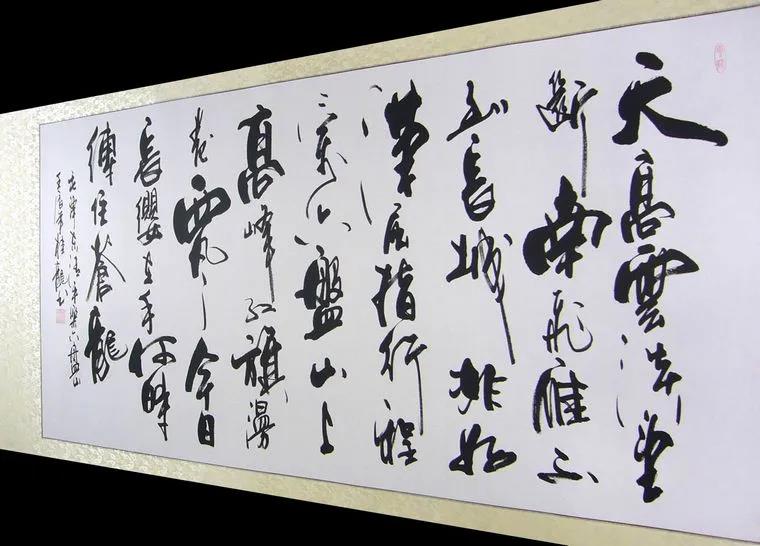 天高雲淡望
斷南飛雁不
到長城非好
漢屈指行程
二萬六盤山上
高峰紅旗漫
卷西風今日
長纓在手何時
縛住蒼龍
毛澤東清平樂六盤山
龍书